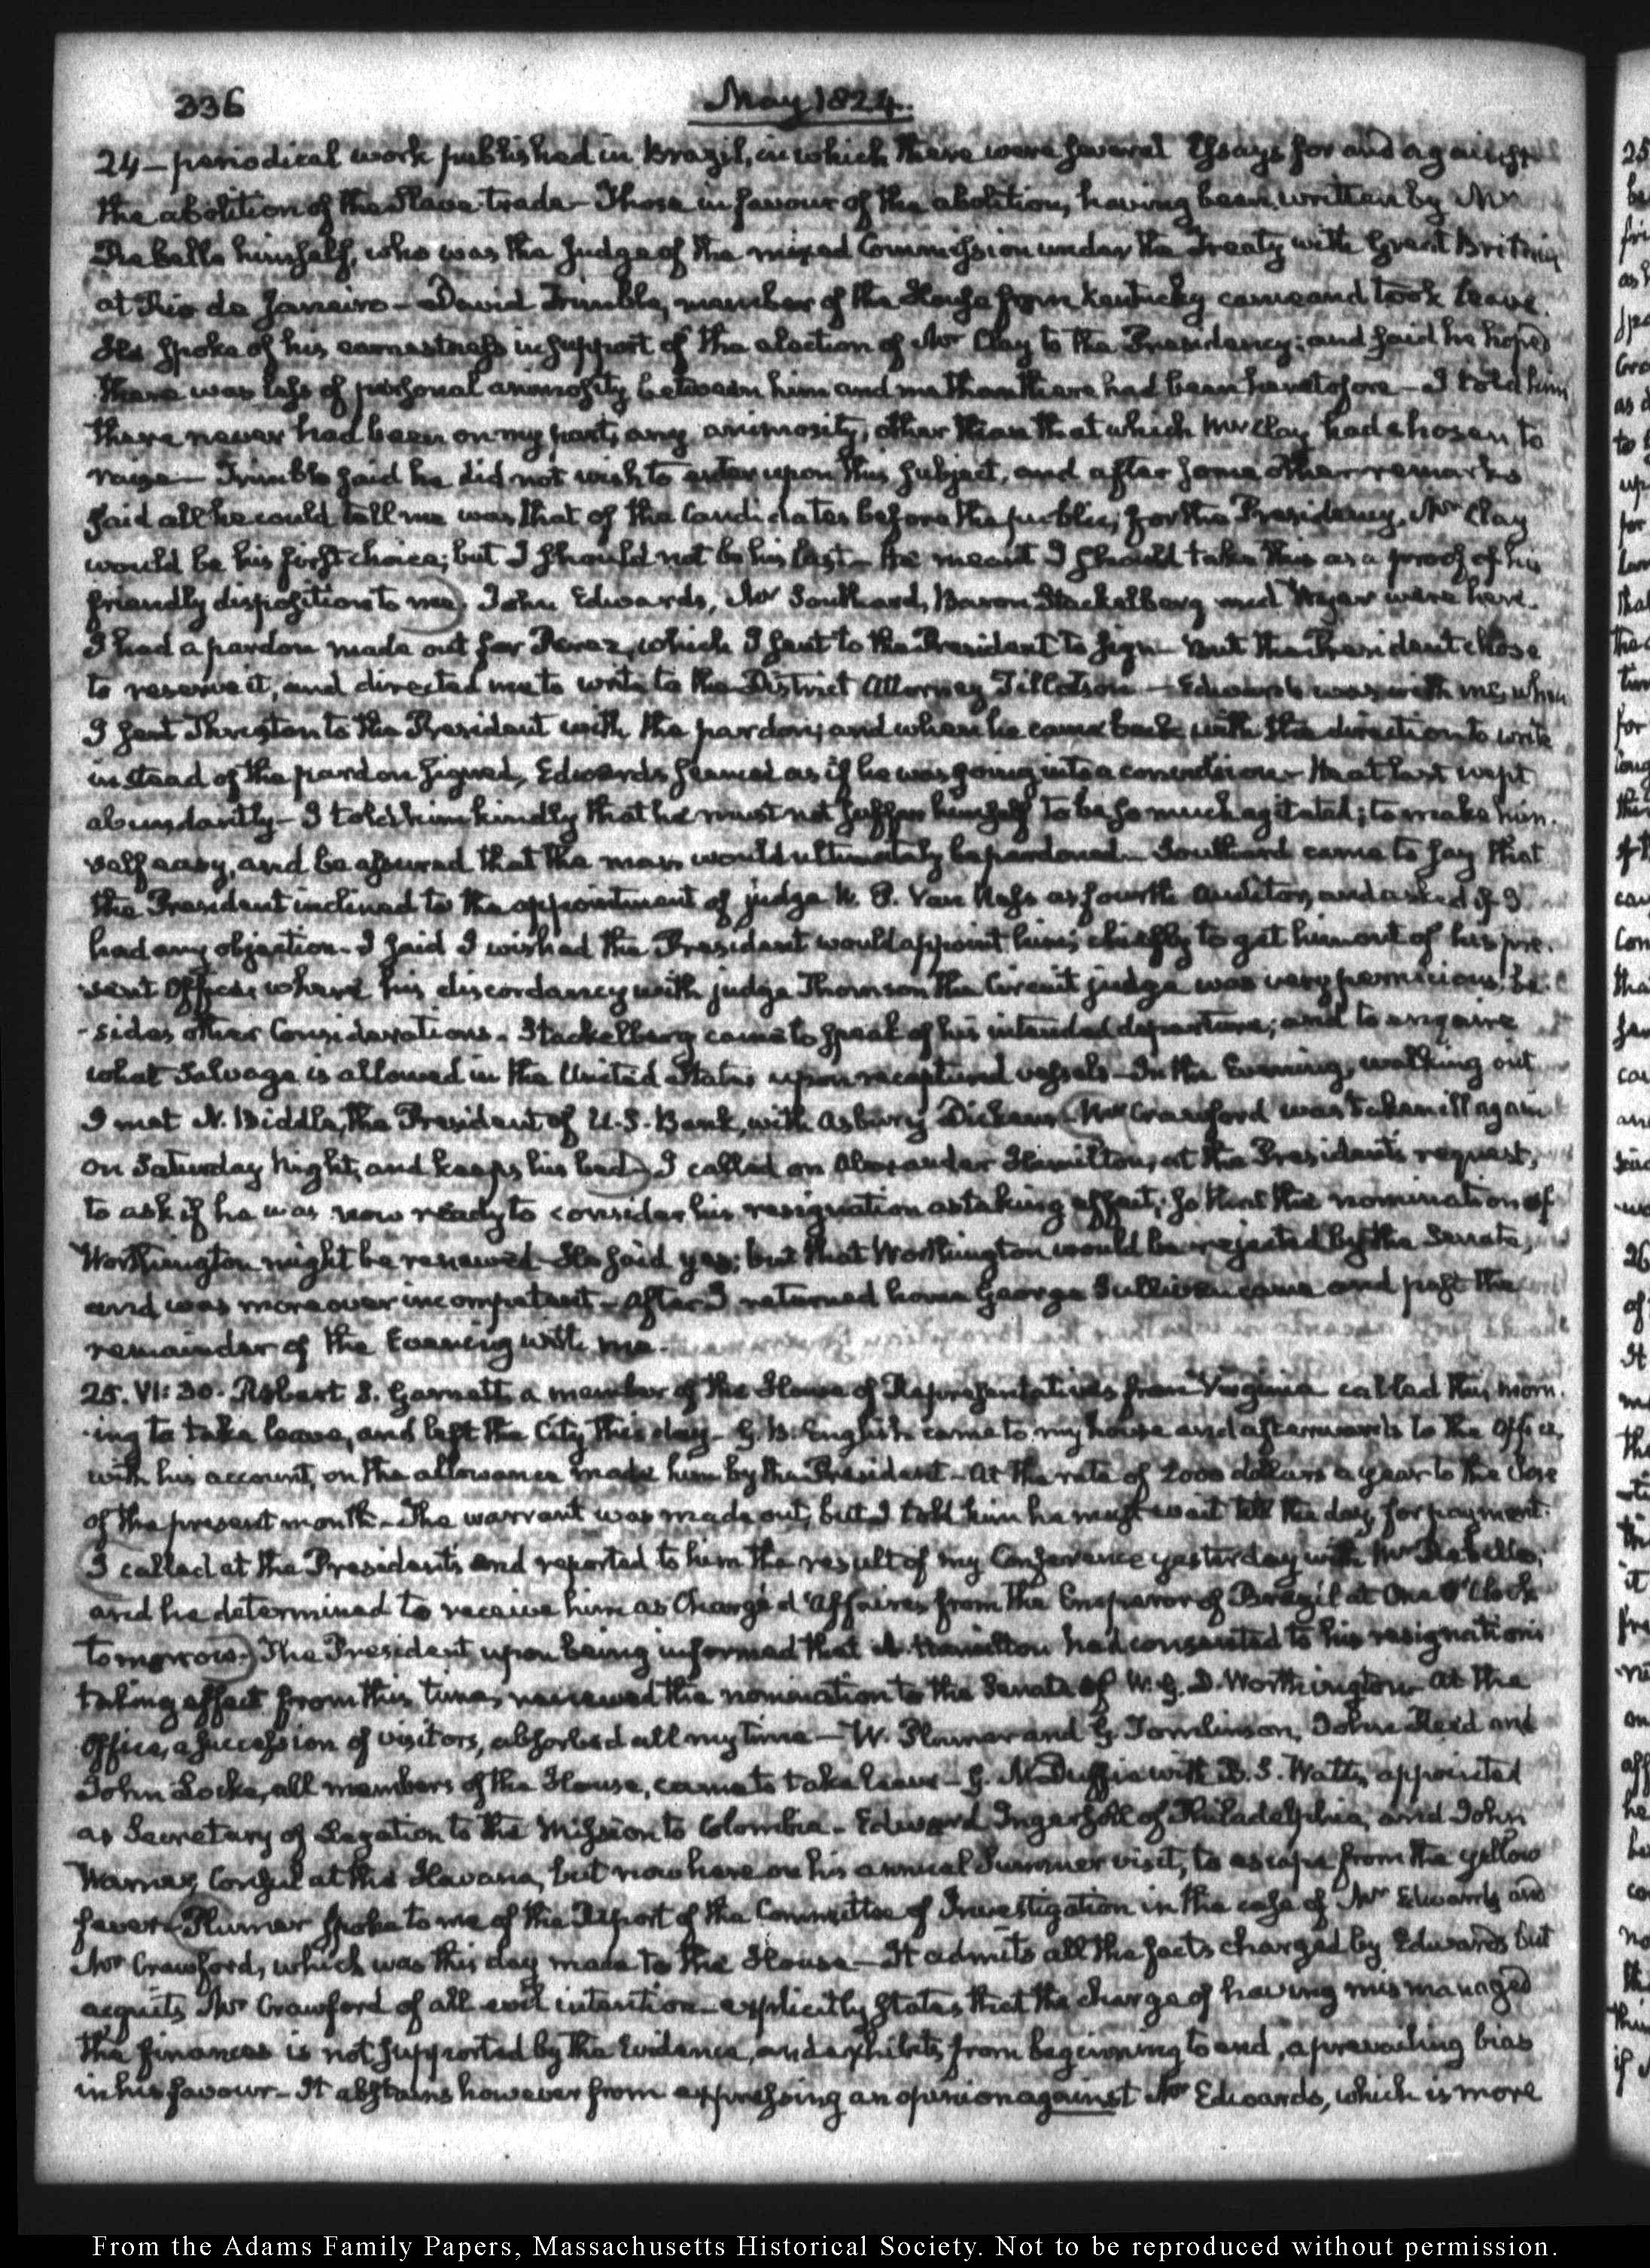 336
May 1824.
24 — periodical work published in Brazil, in which there were several Essays for and against
the abolition of the Slave-trade — Those in favour of the abolition, having been written by Mr
Rebello himself, who was the Judge of the mixed Commission under the Treaty with Great Britain
at Rio de Janeiro — David Trimble, member of the House from Kentucky came and took leave.
He spoke of his earnestness in support of the election of Mr Clay to the Presidency; and said he hoped
there was less of personal animosity between him and me than there had been heretofore — I told him
there never had been on my part, any animosity, other than that which Mr Clay had chosen to
raise — Trimble said he did not wish to enter upon this subject, and after some other remarks
said all he could tell me was, that of the Candidates before the public, for the Presidency, Mr Clay
would be his first choice; but I should not be his last — He meant I should take this as a proof of his
friendly disposition to me) John Edwards, Mr Southard, Baron Stackelberg and Wyer were here.
I had a pardon made out for Perez, which I sent to the President to sign — But the President chose
to reserve it, and directed me to write to the District Attorney Tillotson — Edwards was with me, when
I sent Thruston to the President with the pardon; and when he came back with the direction to write
instead of the pardon signed, Edwards seemed as if he was going into a convulsion — He at last wept
abundantly — I told him kindly that he must not suffer himself to be so much agitated; to make him-
self easy, and be assured that the man would ultimately be pardoned — Southard came to say that
the President inclined to the appointment of judge W. P. Van Ness as fourth Auditor, and asked if I
had any objection — I said I wished the President would appoint him; chiefly to get him out of his pre-
sent Office, where his discordancy with judge Thomson the Circuit judge was very pernicious; be-
-sides other Considerations. Stackelberg came to speak of his intended departure; and to enquire
what Salvage is allowed in the United States upon recaptured vessels — In the Evening, walking out
I met N. Biddle, the President of U.S. Bank, with Asbury Dickens (Mr Crawford was taken ill again
on Saturday Night, and keeps his bed) I called on Alexander Hamilton, at the President's request,
to ask if he was now ready to consider his resignation as taking effect; so that the nomination of
Worthington might be renewed — He said yes; but that Worthington would be rejected by the Senate,
and was moreover incompetent — After I returned home George Sullivan came and past the
remainder of the Evening with me.
25. VI:30. Robert S. Garnett a member of the House of Representatives from Virginia called this morn-
-ing to take leave, and left the City this day — G. B. English came to my house and afterwards to the Office,
with his account, on the allowance made him by the President — At the rate of 2000 dollars a year to the close
of the present month — The warrant was made out, but I told him he must wait till the day, for payment.
(I called at the President's and reported to him the result of my Conference yesterday with Mr Rebello;
and he determined to receive him as Chargé d'Affaires from the Emperor of Brazil at One O'Clock
tomorrow.) The President upon being informed that A. Hamilton had consented to his resignation's
taking effect from this time, renewed the nomination to the Senate of W. G. D. Worthington — At the
Office, a succession of visitors, absorbed all my time — W. Plumer and G. Tomlinson, John Reed and
John Locke, all members of the House, came to take leave — G. McDuffie with B. S. Watts, appointed
as Secretary of Legation to the Mission to Colombia — Edward Ingersoll of Philadelphia, and John
Warner, Consul at the Havana, but now here on his annual Summer visit, to escape from the yellow
fever (Plumer spoke to me of the Report of the Committee of Investigation in the case of Mr Edwards and
Mr Crawford, which was this day made to the House — It admits all the facts charged by Edwards but
acquits Mr Crawford of all evil intention — explicitly states that the charge of having mismanaged
the finances is not supported by the Evidence, and exhibits from beginning to end, a prevailing bias
in his favour — It abstains however from expressing an opinion against Mr Edwards, which is more
From the Adams Family Papers, Massachusetts Historical Society. Not to be reproduced without permission.